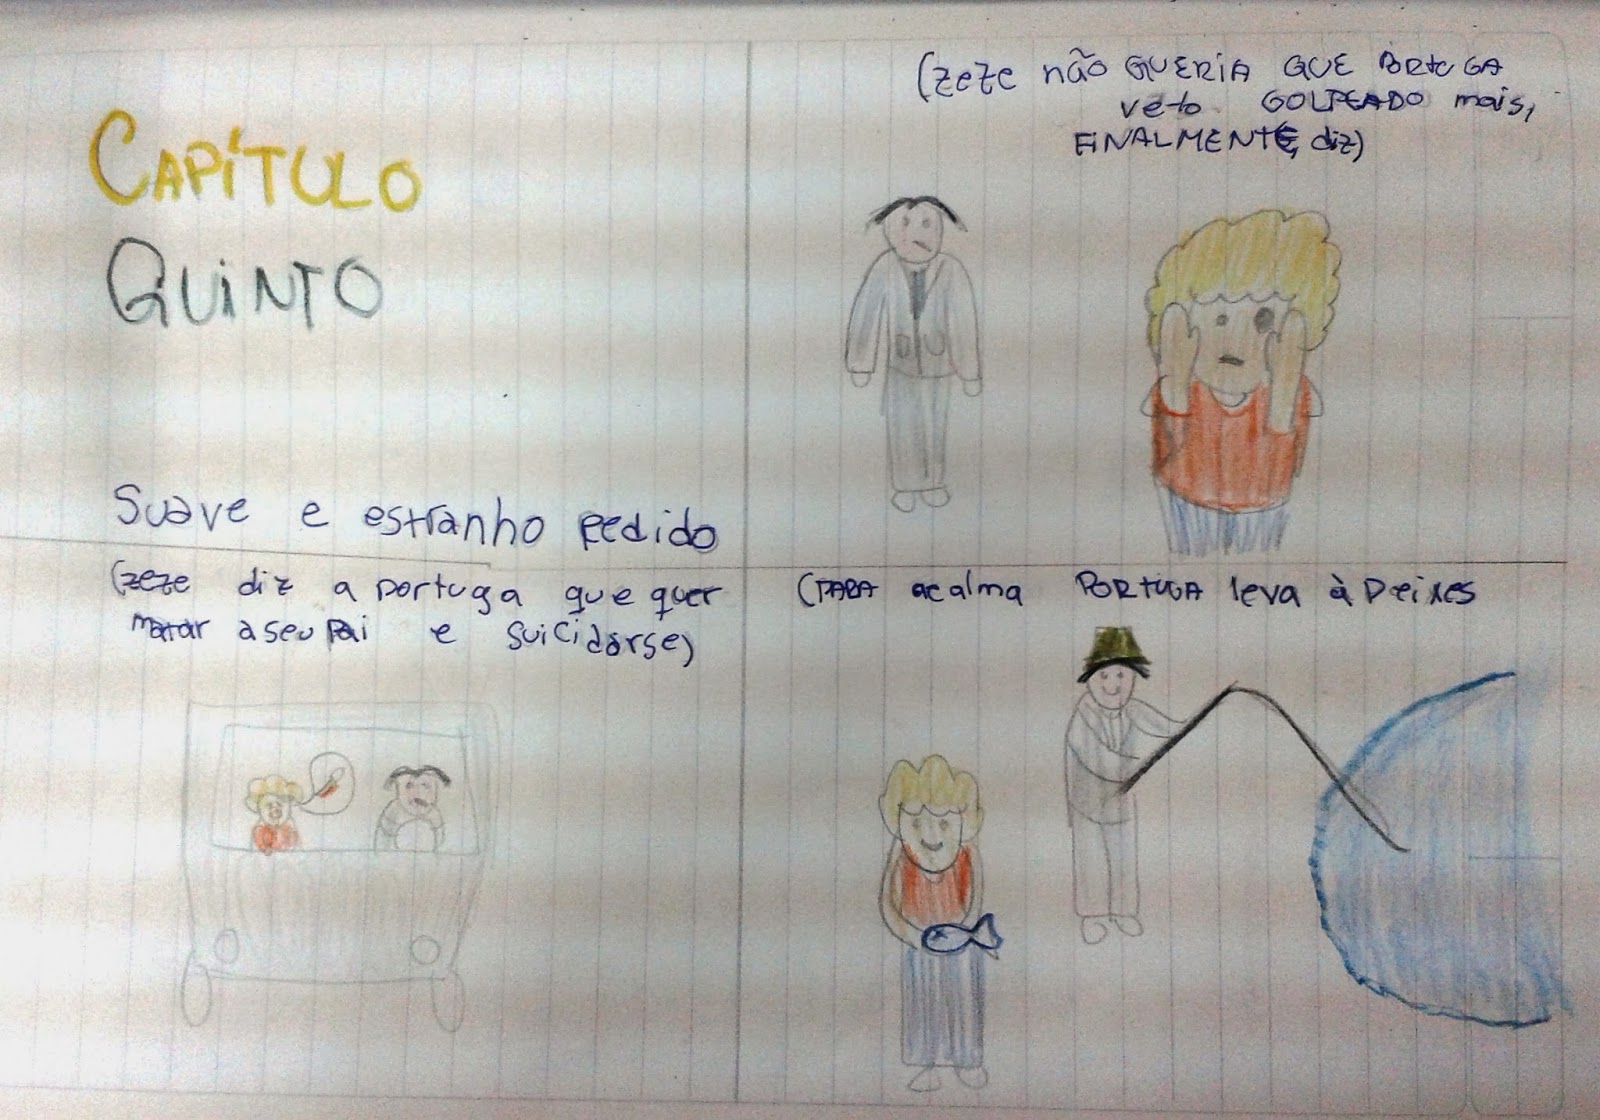 CAPÍTULO
QUINTO
Suave e estranho pedido
(zeze não QUERIA QUE PORTUGA
veto GOLPEADO mais,
FINALMENTE, diz)
(zeze diz a portuga que quer
matar a seu Pai e suicidarse)
(PARA acalma PORTUGA leva à Peixes